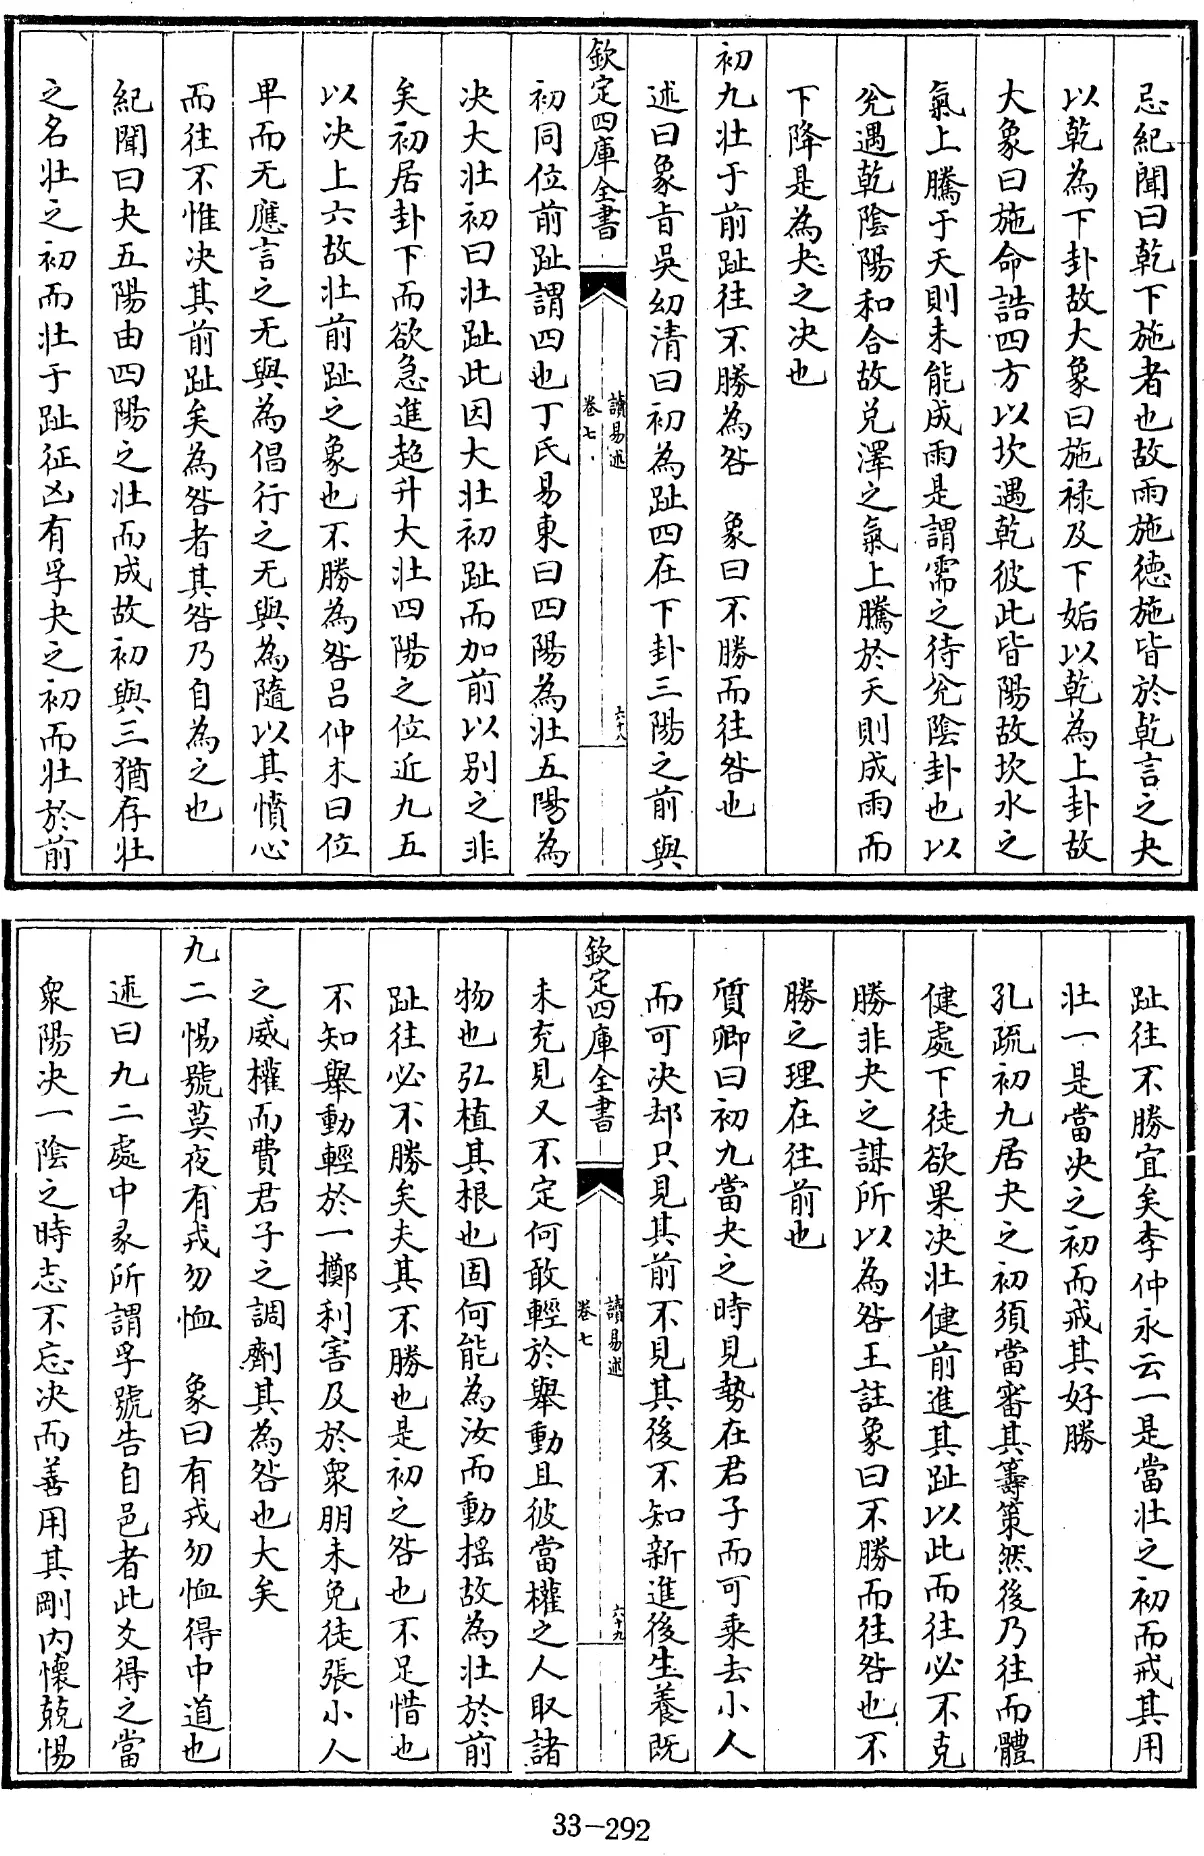 忌紀聞曰乾下施者也故雨施徳施皆於乾言之夬
以乾為下卦故大象曰施禄及下姤以乾為上卦故
大象曰施命誥四方以坎遇乾彼此皆陽故坎水之
氣上騰于天則未能成雨是謂需之待兊陰卦也以
兊遇乾陰陽和合故兑澤之氣上騰於天則成雨而
下降是為夬之決也
初九壯于前趾往不勝為咎　象曰不勝而往咎也
述曰象旨吳幼清曰初為趾四在下卦三陽之前與
欽定四庫全書
讀易述
卷七
六十八
初同位前趾謂四也丁氏易東曰四陽為壯五陽為
決大壯初曰壯趾此因大壯初趾而加前以别之非
矣初居卦下而欲急進超升大壯四陽之位近九五
以決上六故壯前趾之象也不勝為咎吕仲木曰位
卑而无應言之无與為倡行之无與為隨以其憤心
而往不惟決其前趾矣為咎者其咎乃自為之也
紀聞曰夬五陽由四陽之壯而成故初與三猶存壯
之名壯之初而壯于趾征凶有孚夬之初而壯於前
趾往不勝宜矣李仲永云一是當壯之初而戒其用
壯一是當決之初而戒其好勝
孔疏初九居夬之初須當審其籌策然後乃往而體
健處下徒欲果決壯健前進其趾以此而往必不克
勝非夬之謀所以為咎王註象曰不勝而往咎也不
勝之理在往前也
質卿曰初九當夬之時見勢在君子而可乗去小人
而可決却只見其前不見其後不知新進後生養既
欽定四庫全書
讀易述
卷七
六十九
未充見又不定何敢輕於舉動且彼當權之人取諸
物也弘植其根也固何能為汝而動揺故為壯於前
趾往必不勝矣夫其不勝也是初之咎也不足惜也
不知舉動輕於一擲利害及於衆朋未免徒張小人
之威權而費君子之調劑其為咎也大矣
九二惕號莫夜有戎勿恤　象曰有戎勿恤得中道也
述曰九二處中彖所謂孚號告自邑者此爻得之當
衆陽決一陰之時志不忘決而善用其剛内懷兢惕
33-292